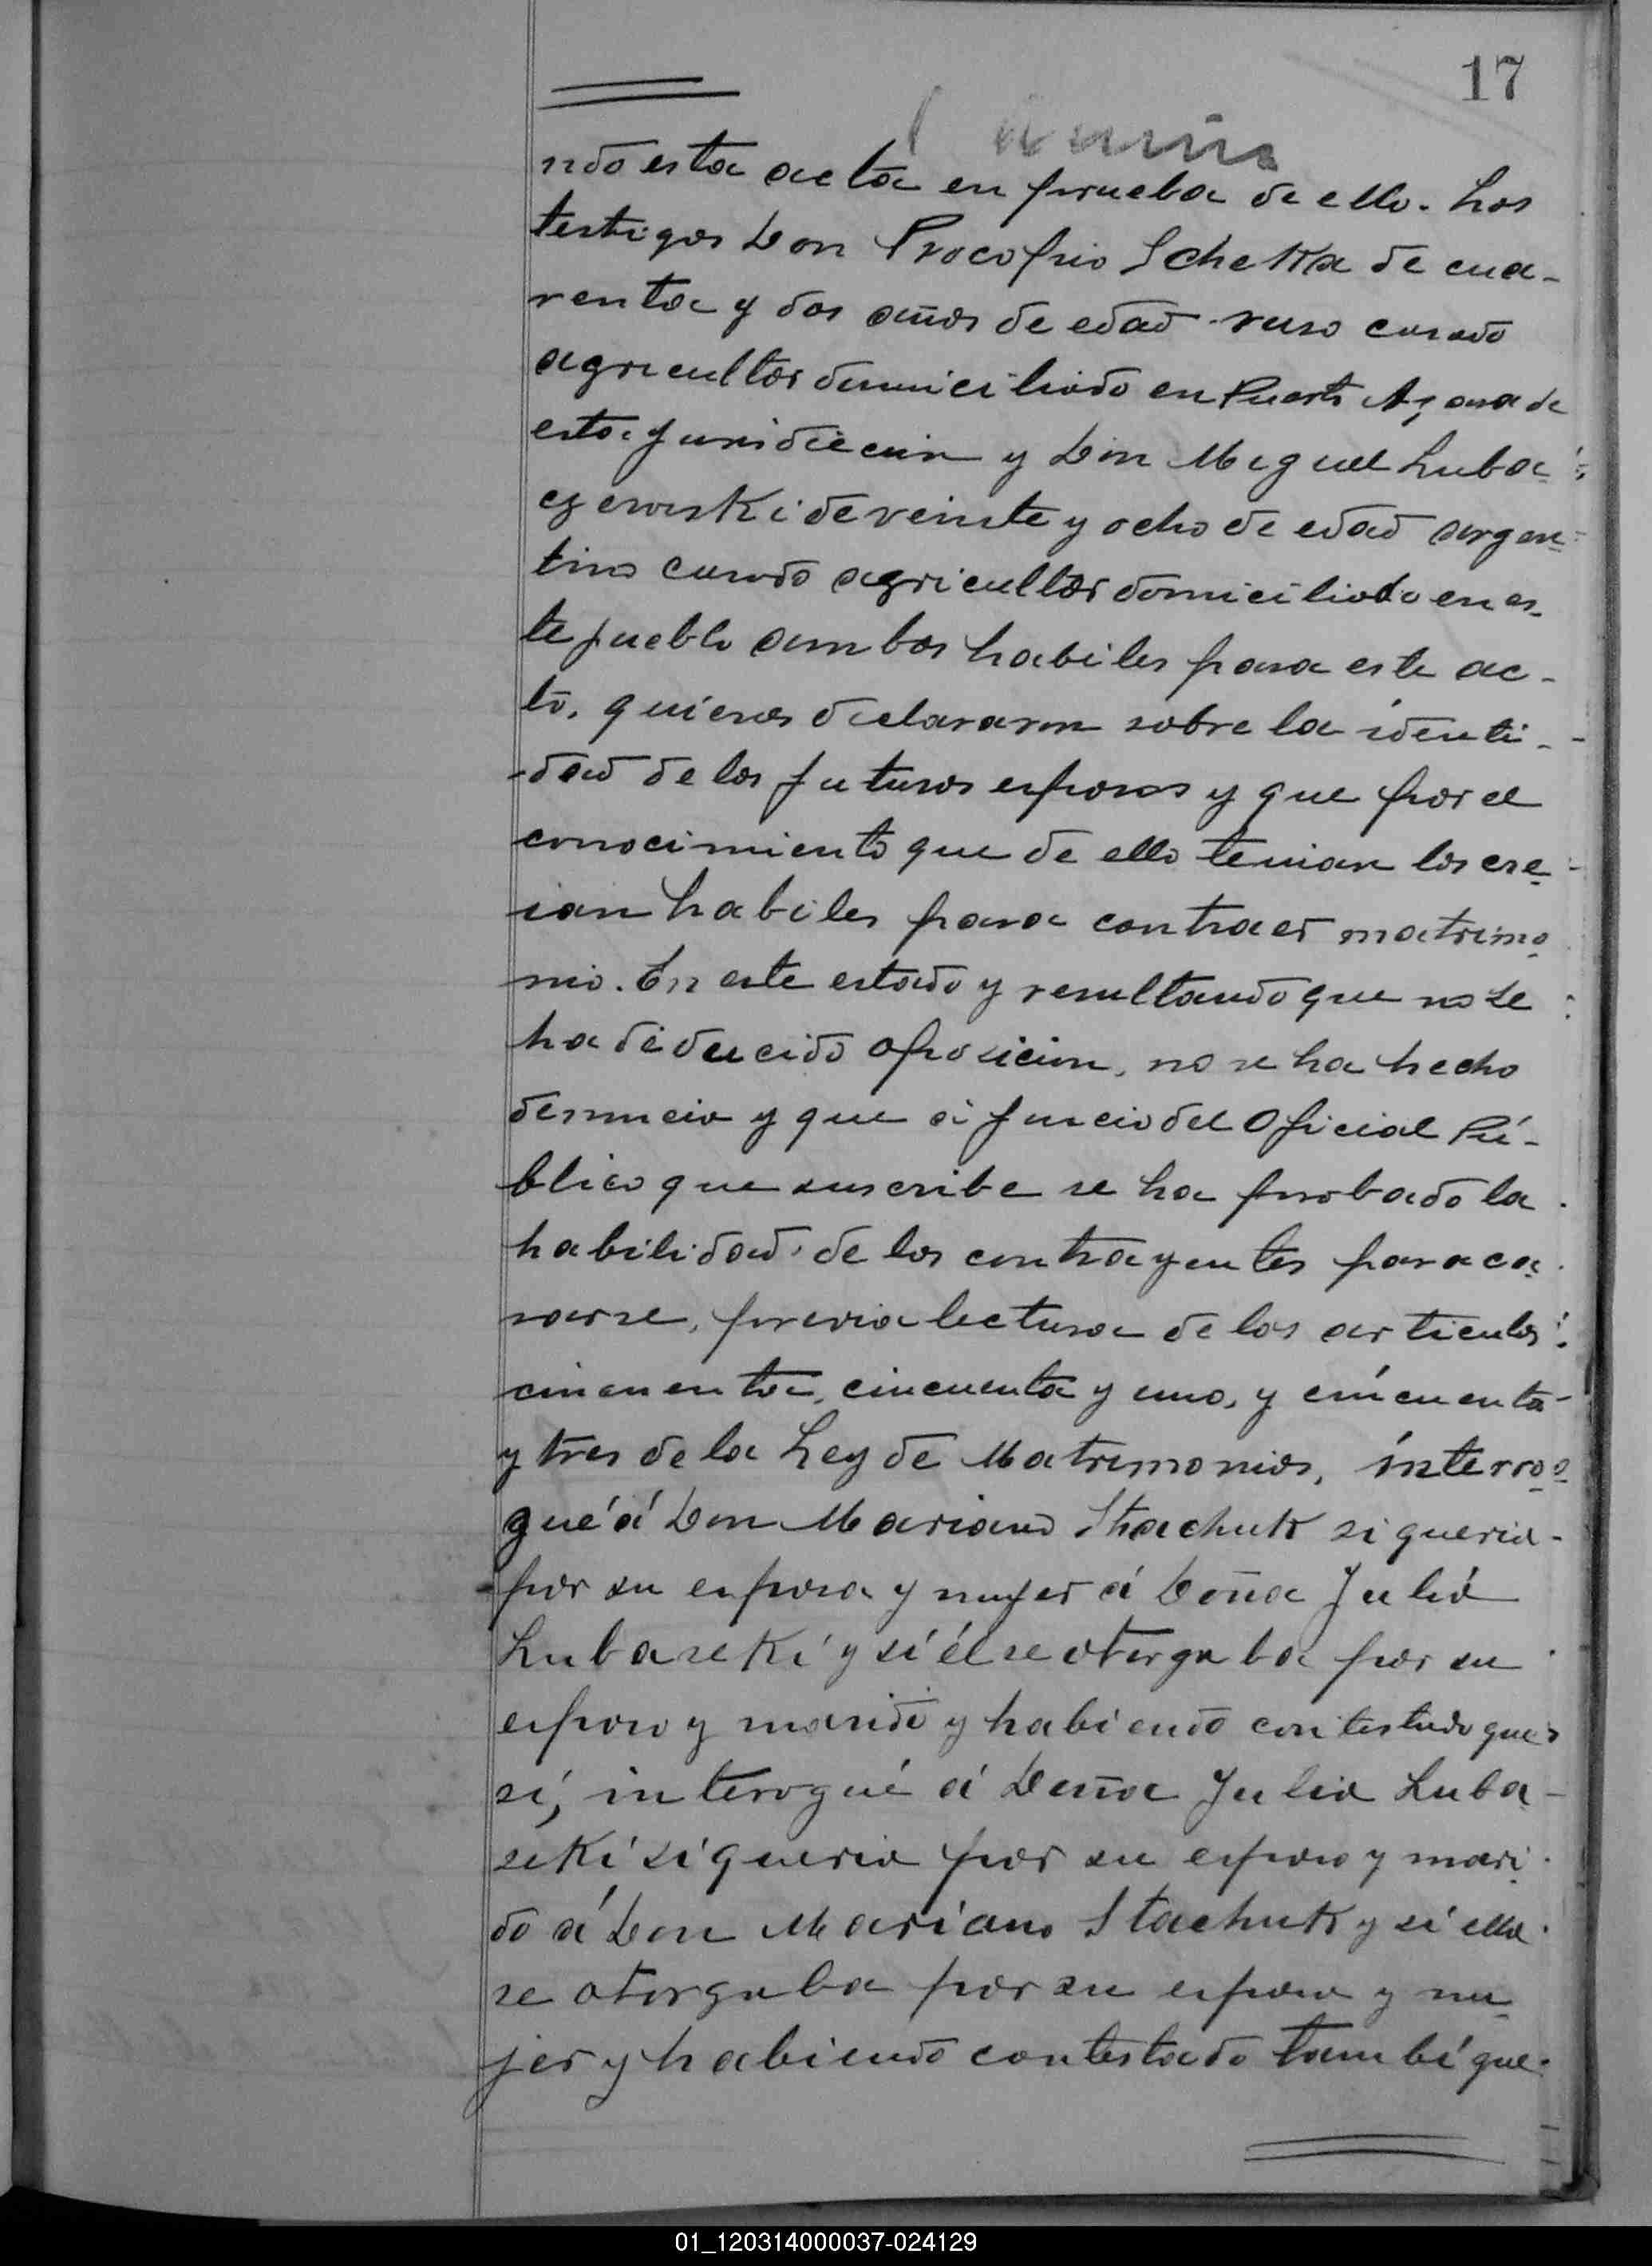 17
ndo esta acta en prueba de ello. Los
testigos Don Procopio Schetka de cua-
renta y dos años de edad ruso casado
agricultor domiciliado en Puerto Azara de
esta Juridiccion y Don Miguel Luba-
czewski de veinte y ocho de edad argen-
tino casado agricultor domiciliado en es-
te pueblo ambos habiles para este ac-
to, quienes declararon sobre la identi-
dad de los futuros esposos y que por el
conocimiento que de ello tenian los cre-
ian habiles para contraer matrimo-
nio. En este estado y resultando que no se
ha deducido oposicion, no se ha hecho
denuncia y que a juicio del Oficial Pú-
blico que suscribe se ha probado la
habilidad de los contrayentes para ca-
sarse, previa lectura de los articulos
cincuenta, cincuenta y uno, y cincuenta
y tres de la Ley de Matrimonios, interro-
gué á Don Mariano Stachuk si queria
por su esposa y mujer á Doña Julia
Lubaseki y sí él se otorgaba por su
esposo y marido y habiendo contestado que
sí, interogué á Doña Julia Luba-
seki sí queria por su esposo y mari-
do á Don Mariano Stachuk y sí ella
se otorgaba por su esposa y mu-
jer y habiendo contestado tambi que
01_120314000037-024129